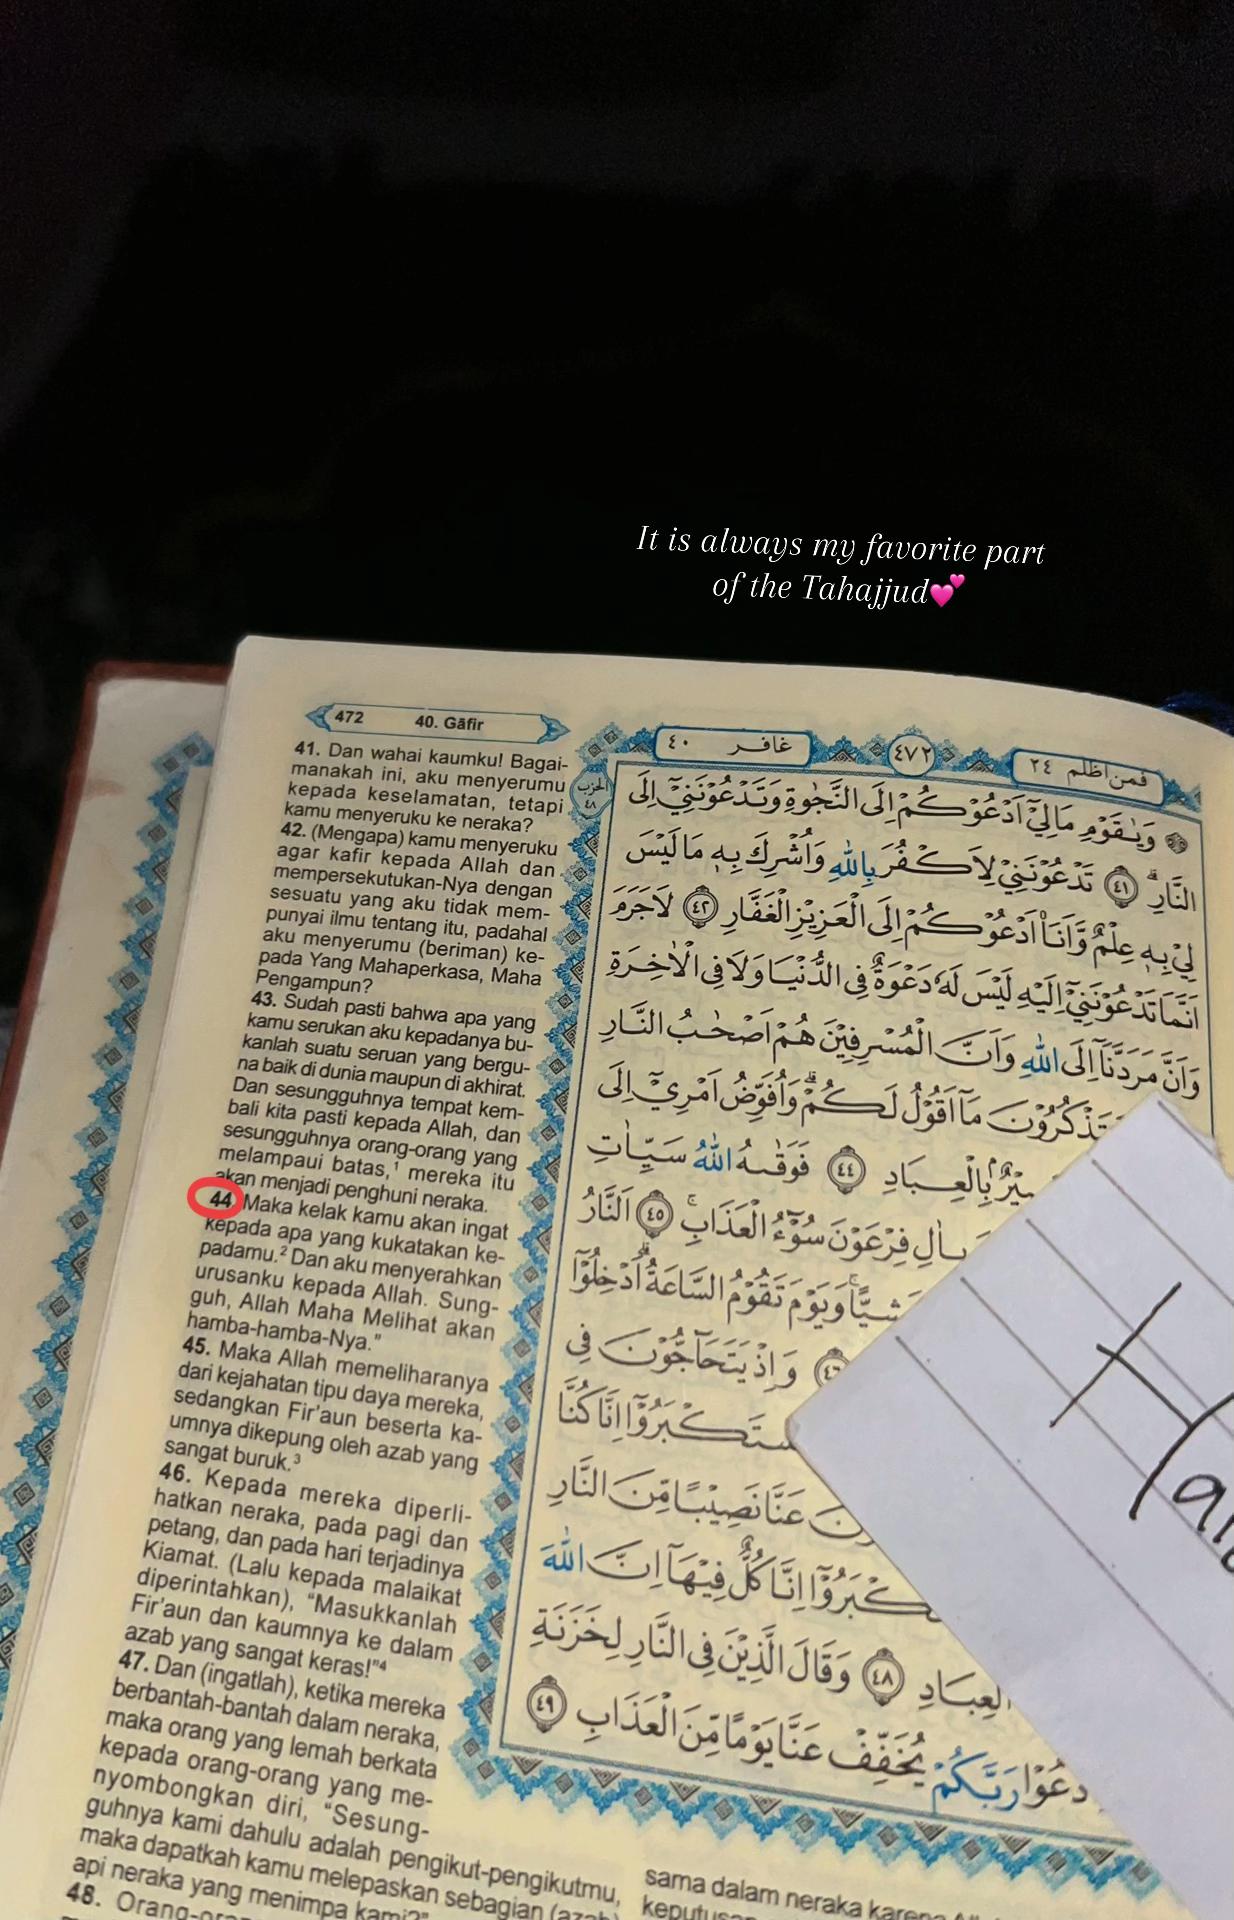 It is always my favorite part
of the Tahajjud💕
472 40. Gāfir
41. Dan wahai kaumku! Bagai-
manakah ini, aku menyerumu
kepada keselamatan, tetapi
kamu menyeruku ke neraka?
42. (Mengapa) kamu menyeruku
agar kafir kepada Allah dan
mempersekutukan-Nya dengan
sesuatu yang aku tidak mem-
punyai ilmu tentang itu, padahal
aku menyerumu (beriman) ke-
pada Yang Mahaperkasa, Maha
Pengampun?
43. Sudah pasti bahwa apa yang
kamu serukan aku kepadanya bu-
kanlah suatu seruan yang bergu-
na baik di dunia maupun di akhirat.
Dan sesungguhnya tempat kem-
bali kita pasti kepada Allah, dan
sesungguhnya orang-orang yang
melampaui batas,¹ mereka itu
akan menjadi penghuni neraka.
44 Maka kelak kamu akan ingat
kepada apa yang kukatakan ke-
padamu.² Dan aku menyerahkan
urusanku kepada Allah. Sung-
guh, Allah Maha Melihat akan
hamba-hamba-Nya."
45. Maka Allah memeliharanya
dari kejahatan tipu daya mereka,
sedangkan Fir'aun beserta ka-
umnya dikepung oleh azab yang
sangat buruk.³
46. Kepada mereka diperli-
hatkan neraka, pada pagi dan
petang, dan pada hari terjadinya
Kiamat. (Lalu kepada malaikat
diperintahkan), "Masukkanlah
Fir'aun dan kaumnya ke dalam
azab yang sangat keras!"⁴
47. Dan (ingatlah), ketika mereka
berbantah-bantah dalam neraka,
maka orang yang lemah berkata
kepada orang-orang yang me-
nyombongkan diri, "Sesung-
guhnya kami dahulu adalah pengikut-pengikutmu,
maka dapatkah kamu melepaskan sebagian (azab)
api neraka yang menimpa kami?"
48. Orang-orang
فمن اظلم ٢٤ ٤٧٢ غافر ٤٠
الحزب
٤٨
۞ وَيٰقَوْمِ مَالِيْٓ اَدْعُوْكُمْ اِلَى النَّجٰوةِ وَتَدْعُوْنَنِيْٓ اِلَى
النَّارِۗ ٤١ تَدْعُوْنَنِيْ لِاَكْفُرَ بِاللّٰهِ وَاُشْرِكَ بِهٖ مَا لَيْسَ
لِيْ بِهٖ عِلْمٌ وَّاَنَا۠ اَدْعُوْكُمْ اِلَى الْعَزِيْزِ الْغَفَّارِ ٤٢ لَا جَرَمَ
اَنَّمَا تَدْعُوْنَنِيْٓ اِلَيْهِ لَيْسَ لَهٗ دَعْوَةٌ فِى الدُّنْيَا وَلَا فِى الْاٰخِرَةِ
وَاَنَّ مَرَدَّنَآ اِلَى اللّٰهِ وَاَنَّ الْمُسْرِفِيْنَ هُمْ اَصْحٰبُ النَّارِ
مَآ اَقُوْلُ لَكُمْۗ وَاُفَوِّضُ اَمْرِيْٓ اِلَى
بِالْعِبَادِ ٤٤ فَوَقٰىهُ اللّٰهُ سَيِّاٰتِ
فِرْعَوْنَ سُوْۤءُ الْعَذَابِۚ ٤٥ اَلنَّارُ
وَيَوْمَ تَقُوْمُ السَّاعَةُۗ اَدْخِلُوْٓا
وَاِذْ يَتَحَاۤجُّوْنَ فِى
اِنَّا كُنَّا
عَنَّا نَصِيْبًا مِّنَ النَّارِ
اِنَّا كُلٌّ فِيْهَآ اِنَّ اللّٰهَ
الْعِبَادِ ٤٨ وَقَالَ الَّذِيْنَ فِى النَّارِ لِخَزَنَةِ
رَبَّكُمْ يُخَفِّفْ عَنَّا يَوْمًا مِّنَ الْعَذَابِ ٤٩
sama dalam neraka karena